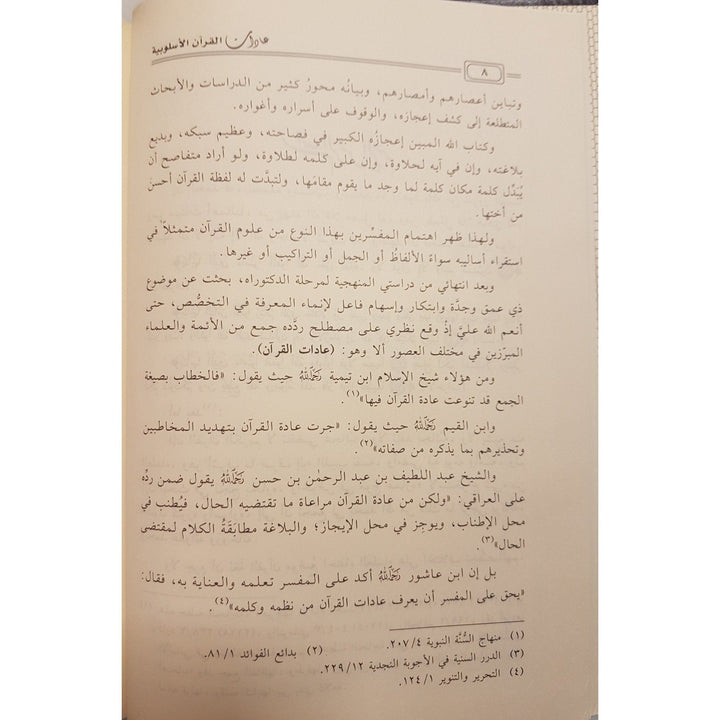 عادات القرآن الأسلوبية
٨
وتباين أعصارهم وأمصارهم، وبيانُه محورُ كثير من الدراسات والأبحاث
المتطلعة إلى كشف إعجازه، والوقوف على أسراره وأغواره.
وكتاب الله المبين إعجازُه الكبير في فصاحته، وعظيم سبكه، وبديع
بلاغته، وإن في آيه لحلاوة، وإن على كلمه لطلاوة، ولو أراد متفاصح أن
يُبَدِّل كلمة مكان كلمة لما وجد ما يقوم مقامَها، ولتبدَّت له لفظة القرآن أحسنَ
من أختها.
ولهذا ظهر اهتمام المفسِّرين بهذا النوع من علوم القرآن متمثلاً في
استقراء أساليبه سواءً الألفاظُ أو الجمل أو التراكيب أو غيرها.
وبعد انتهائي من دراستي المنهجية لمرحلة الدكتوراه، بحثت عن موضوع
ذي عمق وجدَّة وابتكار وإسهام فاعل لإنماء المعرفة في التخصُّص، حتى
أنعم الله عليَّ إذْ وقع نظري على مصطلح ردَّده جمع من الأئمة والعلماء
المبرّزين في مختلف العصور ألا وهو: (عادات القرآن).
ومن هؤلاء شيخ الإسلام ابن تيمية رَحِمَهُ اللَّهُ حيث يقول: «فالخطاب بصيغة
الجمع قد تنوعت عادة القرآن فيها»(١).
وابن القيم رَحِمَهُ اللَّهُ حيث يقول: «جرت عادة القرآن بتهديد المخاطبين
وتحذيرهم بما يذكره من صفاته»(٢).
والشيخ عبد اللطيف بن عبد الرحمٰن بن حسن رَحِمَهُ اللَّهُ يقول ضمن ردِّه
على العراقي: «ولكن من عادة القرآن مراعاة ما تقتضيه الحال، فيُطنب في
محل الإطناب، ويوجِز في محل الإيجاز؛ والبلاغة مطابَقَةُ الكلام لمقتضى
الحال»(٣).
بل إن ابن عاشور رَحِمَهُ اللَّهُ أكد على المفسر تعلمه والعناية به، فقال:
«يحق على المفسر أن يعرف عادات القرآن من نظمه وكلمه»(٤).
(١) منهاج السُّنَّة النبوية ٢٠٧/٤. (٢) بدائع الفوائد ٨١/١.
(٣) الدرر السنية في الأجوبة النجدية ٢٢٩/١٢.
(٤) التحرير والتنوير ١٢٤/١.